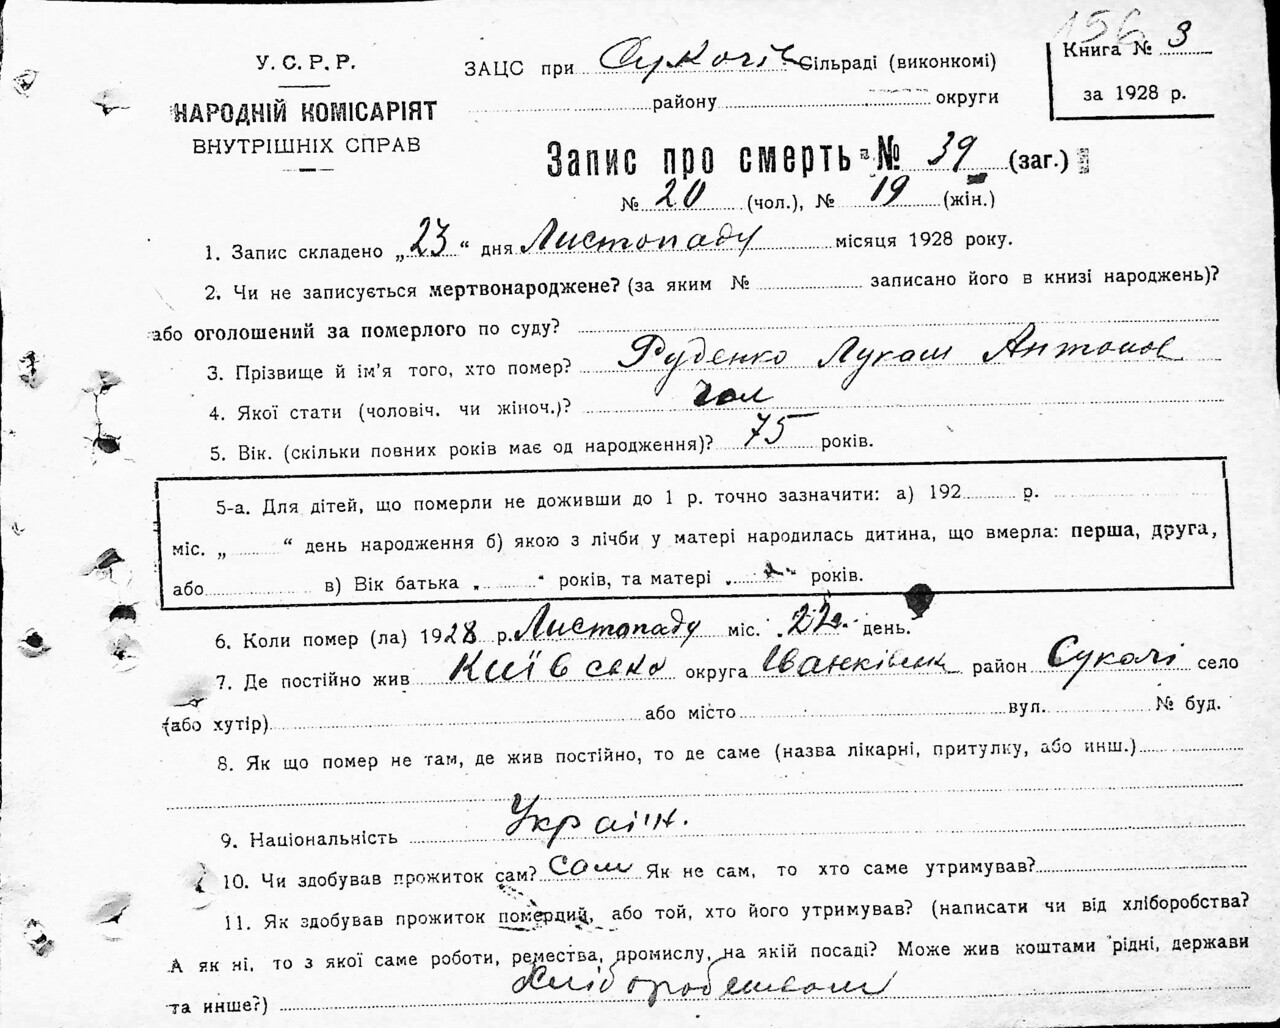 156
У.С.Р.Р.
НАРОДНІЙ КОМІСАРІЯТ
ВНУТРІШНІХ СПРАВ
ЗАЦС при Сукочів Сільраді (виконкомі)
району округи
Книга № 3
за 1928 р.
Запис про смерть № 39 (заг.)
№ 20 (чол.), № 19 (жін.)
1. Запис складено „23“ дня Листопаду місяця 1928 року.
2. Чи не записується мертвонароджене? (за яким № записано його в книзі народжень)?
або оголошений за померлого по суду?
3. Прізвище й ім'я того, хто помер? Руденко Лукаш Антонов
4. Якої стати (чоловіч. чи жіноч.)? чол
5. Вік. (скільки повних років має од народження)? 75 років.
5-а. Для дітей, що померли не доживши до 1 р. точно зазначити: а) 192 р.
міс. „ “ день народження б) якою з лічби у матері народилась дитина, що вмерла: перша, друга,
або в) Вік батька „ “ років, та матері „ “ років.
6. Коли помер (ла) 1928 р. Листопаду міс. 22 день.
7. Де постійно жив Київсько округа Іванківськ район Сукачі село
(або хутір) або місто вул. № буд.
8. Як що помер не там, де жив постійно, то де саме (назва лікарні, притулку, або инш.)
9. Національність Україн.
10. Чи здобував прожиток сам? Сам Як не сам, то хто саме утримував?
11. Як здобував прожиток помердий, або той, хто його утримував? (написати чи від хліборобства?
А як ні, то з якої саме роботи, ремества, промислу, на якій посаді? Може жив коштами рідні, держави
та инше?) Хліборобством